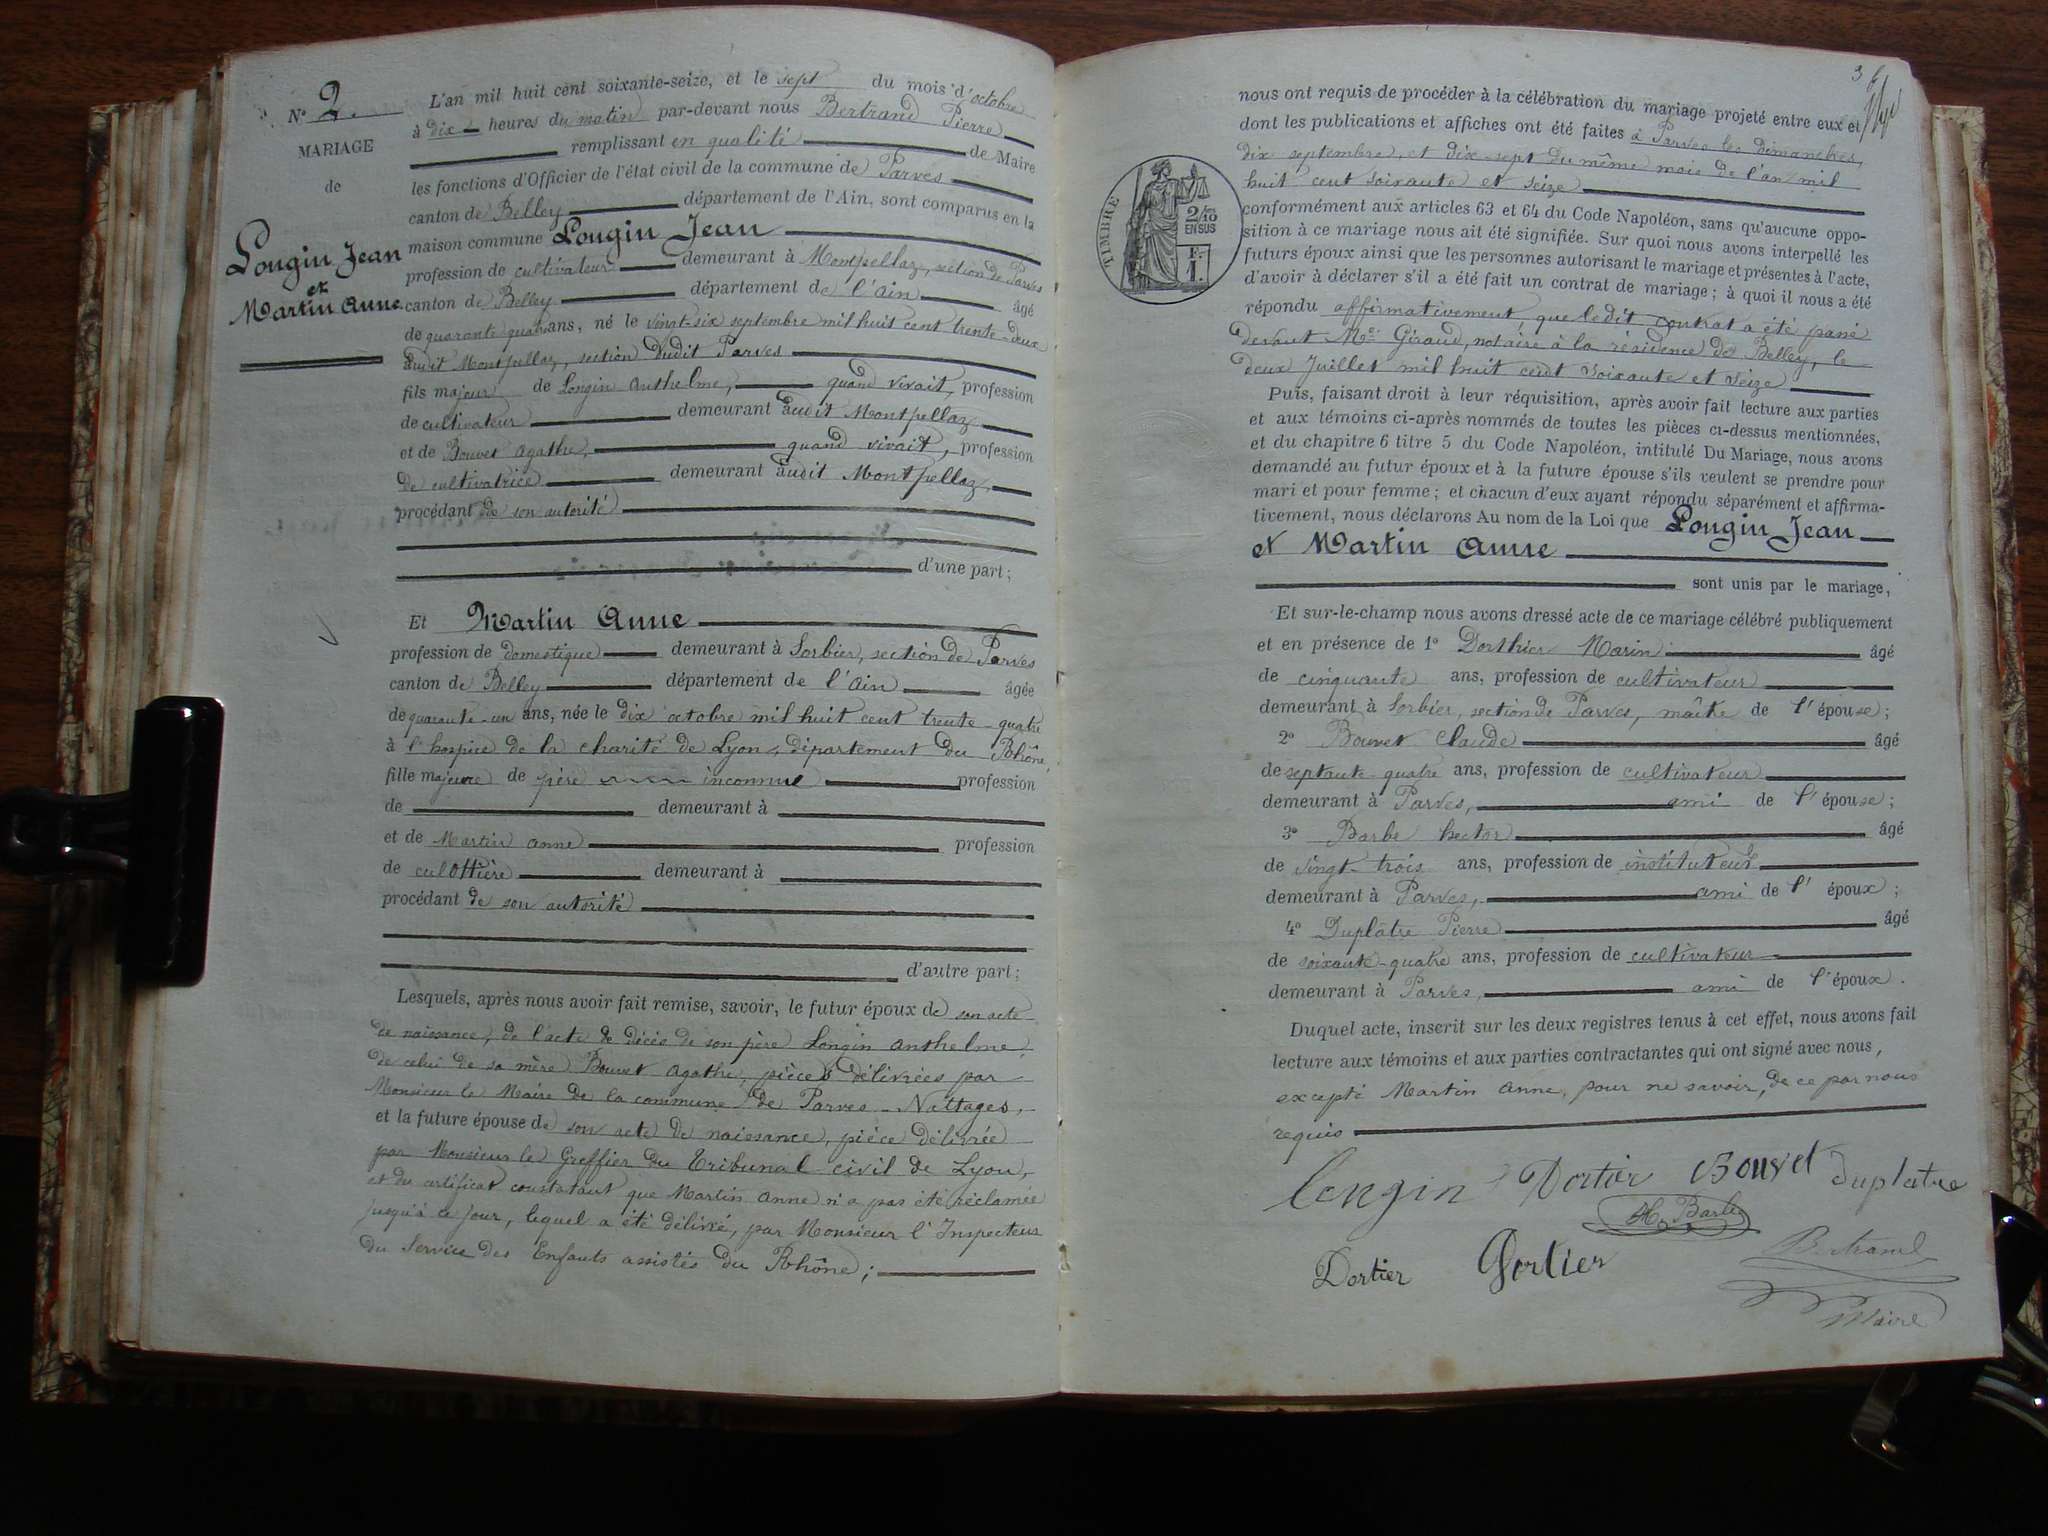 N° 2.
MARIAGE
de
Longin Jean
et
Martin Anne
L'an mil huit cent soixante-seize, et le sept du mois d'octobre
à dix heures du matin par-devant nous Bertrand Pierre
remplissant en qualité de Maire
les fonctions d'Officier de l'état civil de la commune de Parves
canton de Belley département de l'Ain, sont comparus en la
maison commune Longin Jean
profession de cultivateur demeurant à Montpellaz, section de Parves
canton de Belley département de l'Ain âgé
de quarante quatre ans, né le vingt-six septembre mil huit cent trente-deux
audit Montpellaz, section dudit Parves
fils majeur de Longin Anthelme, quand vivait, profession
de cultivateur demeurant audit Montpellaz
et de Bouvet Agathe, quand vivait, profession
de cultivatrice demeurant audit Montpellaz
procédant de son autorité
d'une part;
Et Martin Anne
profession de domestique demeurant à Sorbier, section de Parves
canton de Belley département de l'Ain âgée
de quarante-un ans, née le dix octobre mil huit cent trente-quatre
à l'hospice de la charité de Lyon, département du Rhône,
fille majeure de père inconnue profession
de demeurant à
et de Martin Anne profession
de culottière demeurant à
procédant de son autorité
d'autre part;
Lesquels, après nous avoir fait remise, savoir, le futur époux de son acte
de naissance, de l'acte de décès de son père Longin Anthelme,
de celui de sa mère Bouvet Agathe, pièces délivrées par
Monsieur le Maire de la commune de Parves-Nattages,
et la future épouse de son acte de naissance, pièce délivrée
par Monsieur le Greffier du Tribunal civil de Lyon,
et du certificat constatant que Martin Anne n'a pas été réclamée
jusqu'à ce jour, lequel a été délivré, par Monsieur l'Inspecteur
du Service des Enfants assistés du Rhône;
3
TIMBRE
2/10
EN SUS
F.
1.
nous ont requis de procéder à la célébration du mariage projeté entre eux et
dont les publications et affiches ont été faites à Parves les dimanches,
dix septembre, et dix-sept du même mois de l'an mil
huit cent soixante et seize
conformément aux articles 63 et 64 du Code Napoléon, sans qu'aucune oppo-
sition à ce mariage nous ait été signifiée. Sur quoi nous avons interpellé les
futurs époux ainsi que les personnes autorisant le mariage et présentes à l'acte,
d'avoir à déclarer s'il a été fait un contrat de mariage; à quoi il nous a été
répondu affirmativement que ledit contrat a été passé
devant Me Giraud, notaire à la résidence de Belley, le
deux Juillet mil huit cent soixante et seize
Puis, faisant droit à leur réquisition, après avoir fait lecture aux parties
et aux témoins ci-après nommés de toutes les pièces ci-dessus mentionnées,
et du chapitre 6 titre 5 du Code Napoléon, intitulé Du Mariage, nous avons
demandé au futur époux et à la future épouse s'ils veulent se prendre pour
mari et pour femme; et chacun d'eux ayant répondu séparément et affirma-
tivement, nous déclarons Au nom de la Loi que Longin Jean
et Martin Anne
sont unis par le mariage,
Et sur-le-champ nous avons dressé acte de ce mariage célébré publiquement
et en présence de 1° Dorthier Marin âgé
de cinquante ans, profession de cultivateur
demeurant à Sorbier, section de Parves, maître de l'épouse;
2° Bouvet Claude âgé
de septante-quatre ans, profession de cultivateur
demeurant à Parves, ami de l'épouse;
3° Barbe hector âgé
de vingt-trois ans, profession de instituteur
demeurant à Parves, ami de l'époux;
4° Duplâtre Pierre âgé
de soixante-quatre ans, profession de cultivateur
demeurant à Parves, ami de l'époux.
Duquel acte, inscrit sur les deux registres tenus à cet effet, nous avons fait
lecture aux témoins et aux parties contractantes qui ont signé avec nous,
excepté Martin Anne, pour ne savoir, de ce par nous
requis
Longin Dortier Bouvet Duplatre
H. Barbe
Dortier Dortier Bertrand
Maire